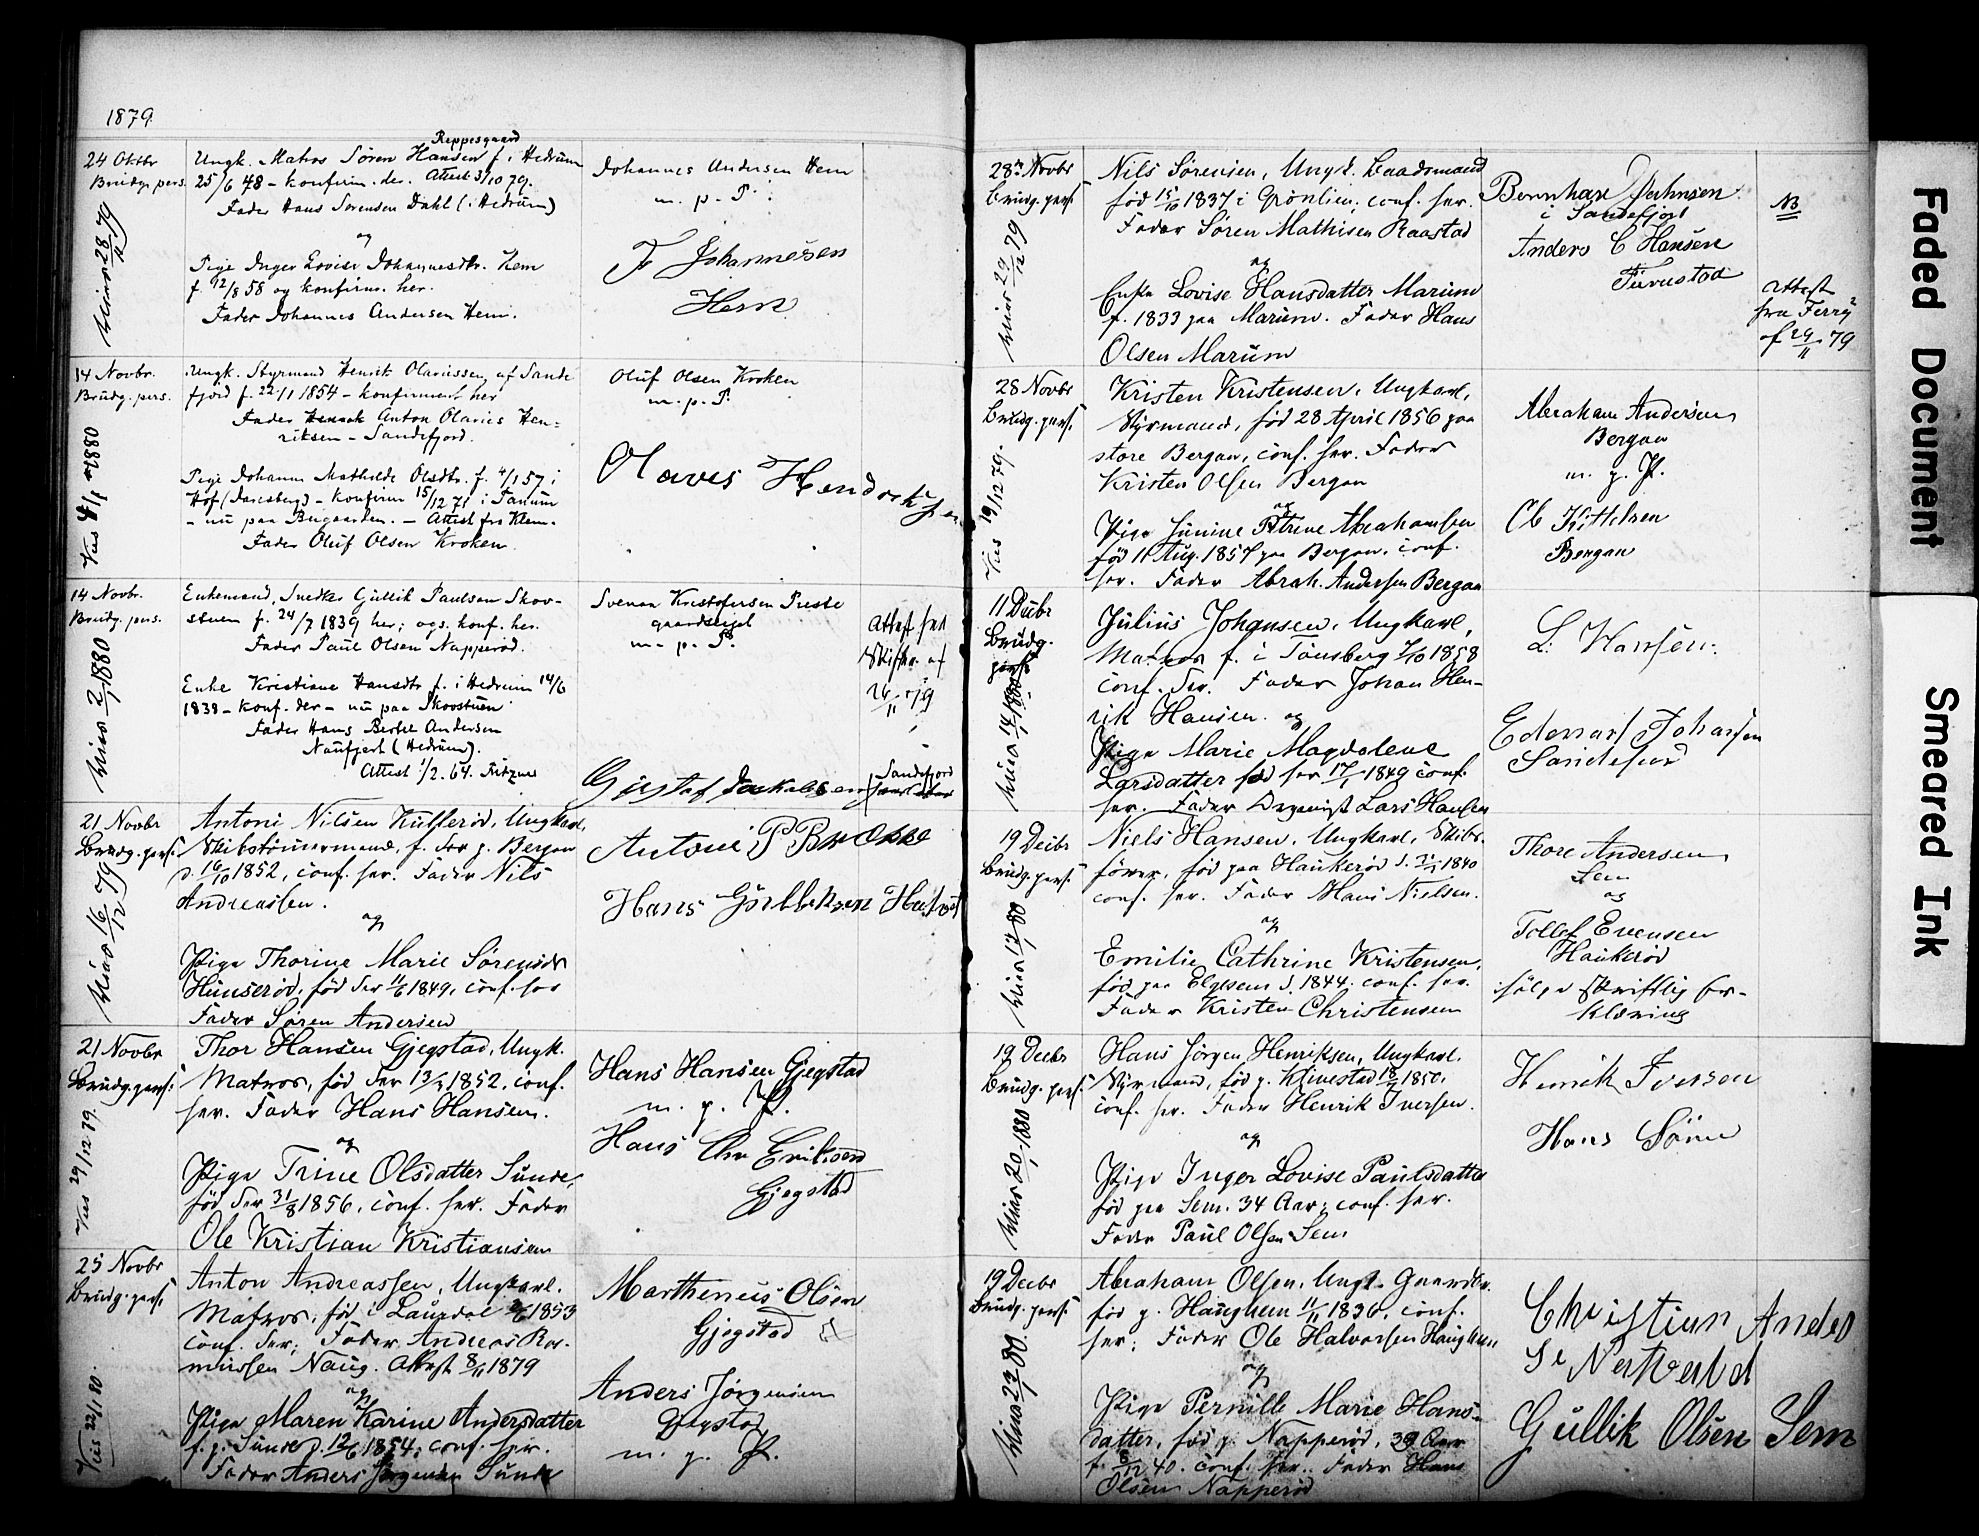 1879.
24 Oktbr
Brudg. pers.
Vies 28/11 79
Reppesgaard
Ungk. Matros Søren Hansen f. i Hedrum
25/6 48 - konfirm. der. Attest 3/10 79.
Fader Hans Sørensen Dahl (i Hedrum)
og
Pige Inger Lovise Johannesdtr. Hem
f. 12/8 58 og konfirm. her.
Fader Johannes Andersen Hem.
Johannes Andersen Hem
m. p. P.
F Johannesen
Hem
14 Novbr.
Brudg. pers.
Vies 4/1 1880
Ungk. Styrmand Henrik Olariussen af Sande
fjord f. 22/11 1854 - konfirmeret her
Fader Anton Olarius Hen=
riksen - Sandefjord.
Pige Johanne Mathilde Olsdtr. f. 4/1 57 i
Hof (Jarlsberg) - konfirm 15/12 71 i Tanum
- nu paa Bugaarden. - Attest fra Klem.
Fader Oluf Olsen Kroken.
Oluf Olsen Kroken
m. p. P.
Olaves Hendreksen
14 Novbr.
Brudg. pers.
Vies 2/1 1880
Enkemand, Snedker Gullik Paulsen Skov-
stuen f. 24/7 1839 her; ogs. konf. her.
Fader Paul Olsen Napperød.
Enke Kristiane Hansdtr f. i Hedrum 14/6
1838 - konf. der - nu paa Skovstuen
Fader Hans Bertel Andersen
Naufjert (Hedrum).
Attest 1/2. 64.
Svenn Kristofersen Preste
gaardsejet
m. p. P.
Gustaf Jaakalsen
Sandefjord
Attest fra
Skifter. af
24/11 79
21 Novbr
Brudg. pers.
Vies 16/12 79
Antoni Nilsen Kullerød, Ungkarl,
Skibstømmermand, f. her p. Bergan
d. 16/10 1852, conf. her. Fader Nils
Andreassen.
og
Pige Thorine Marie Sørensdr
Hunserød, född her 11/6 1849, conf. her
Fader Søren Andersen
Antoni P Brekke
Hans Gulliksen
21 Novbr
Brudg. pers.
Vies 29/12 79.
Thor Hansen Gjegstad, Ungk.
Matros, född her 13/3 1852, conf.
her. Fader Hans Hansen.
og
Pige Trine Olsdatter Sunde,
född her 31/8 1856, conf. her. Fader
Ole Kristian Kristiansen
Hans Hansen Gjegstad
m. p. P.
Hans Chr Eriksen
Gjegstad
25 Novbr
Brudg. pers.
Vies 22/1 80.
Anton Andreassen, Ungkarl.
Matros, född i Laurdal 1853
conf. der; Fader Andreas Ras-
mussen Naug. Attest 8/11 1879
og
Pige Maren Karine Andersdatter
f. p. Sunde d. 12/6 1854, conf. her.
Fader Anders Jørgensen Sunde
Marthenius Olsen
Gjegstad
Anders Jørgensen
Gjegstad
m. p. P.
28de Novbr
Brudg. pers.
Vies 29/12 79
Nils Sørensen, Ungk. Baadsmand
född 15/10 1837 i Grønlien, conf. her.
Fader Søren Mathisen Raastad
og
Enke Lovise Hansdatter Marum
f. 1833 paa Marum. Fader Hans
Olsen Marum
Bernhard Johnsen
i Sandefjord
Anders C Hansen
Furustad
NB
Attest
fra Ferry
af 29/11 79
28 Novbr
Brudg. pers.
Vies 19/12 79.
Kristen Kristensen, Ungkarl,
Styrmand, född 28 April 1856 paa
store Bergan, conf. her. Fader
Kristen Olsen Bergan
og
Pige Jumine Petrine Abrahamsen
född 11 Aug. 1857 paa Bergan, conf.
her. Fader Abrah. Andersen Bergan
Abraham Andersen
Bergan
m. p. P.
Ob Kittelsen
Bergan
11 Decbr
Brudg.
pers.
Julius Johansen, Ungkarl,
Matros f. i Tønsberg 7/10 1858
conf. der. Fader Johan Hen-
rik Hansen. og
Pige Marie Magdalene
Larsdatter född her 17/1 1849 conf.
her. Fader Organist Lars Hansen
L. Hansen.
Edevart Johansen
Sandefjord
19 Decbr
Brudg. pers.
Niels Hansen, Ungkarl, Skibs-
fører, född paa Haukerød 1840
conf. her. Fader Hans Nielsen.
og
Emilie Cathrine Kristensen,
född paa Elgesem d. 1844. conf. her.
Fader Kristen Christensen
Thore Andersen
Fen
og
Tollef Evensen
Haukerød
ifølge skriftlig er-
klæring
19 Decbr
Brudg. pers.
Vies 20/1 1880
Hans Jørgen Henriksen, Ungkarl.
Styrmand, född p. Kjinestad 18/ 1850.
conf. her. Fader Henrik Iversen.
og
Pige Inger Lovise Paulsdatter
född paa Sem. 34 Aar; conf. her.
Fader Paul Olsen Sem
Henrik Iversen
Hans Sørum
19 Decbr
Brudg. pers.
Vies 23/1 80.
Abraham Olsen, Ungk. Gaardbr.
född p. Haughem 11/11 1830, conf.
her; Fader Ole Halvorsen Haughem
og
Pige Pernille Marie Hans-
datter, född p. Napperød, 39 Aar
f. 8/12 40. conf. her. Fader Hans
Olsen Napperød
Christian Anders
Gullik Olsen Sem
Faded Document
Smeared Ink